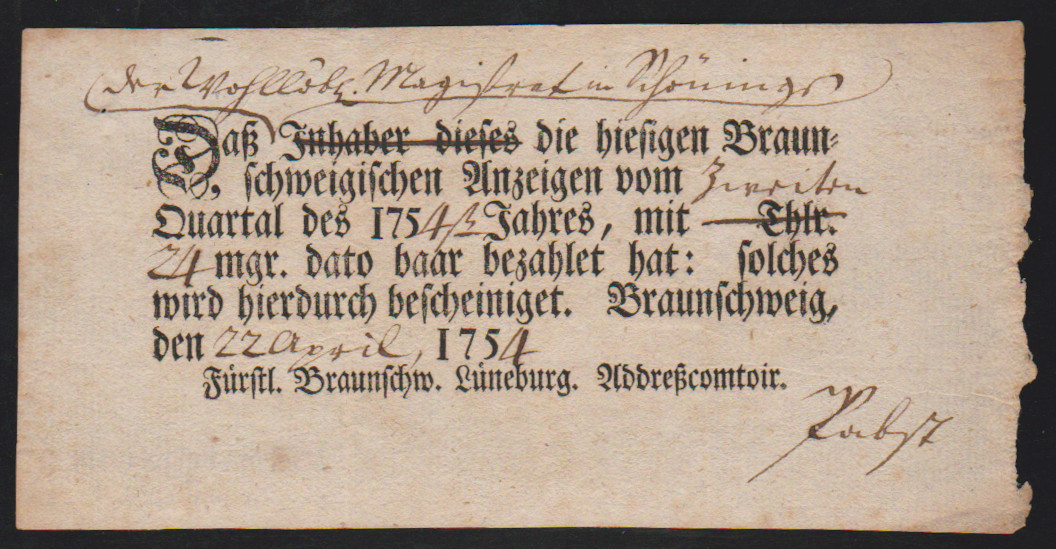 der Wohllöbl. Magistrat in Schöningen
Daß Inhaber dieses die hiesigen Braun-
schweigischen Anzeigen vom Zweiten
Quartal des 1754ß Jahres, mit — Thlr.
24 mgr. dato baar bezahlet hat: solches
wird hierdurch bescheiniget. Braunschweig,
den 22 April, 1754
Fürstl. Braunschw. Lüneburg. Addreßcomtoir.
Pabst